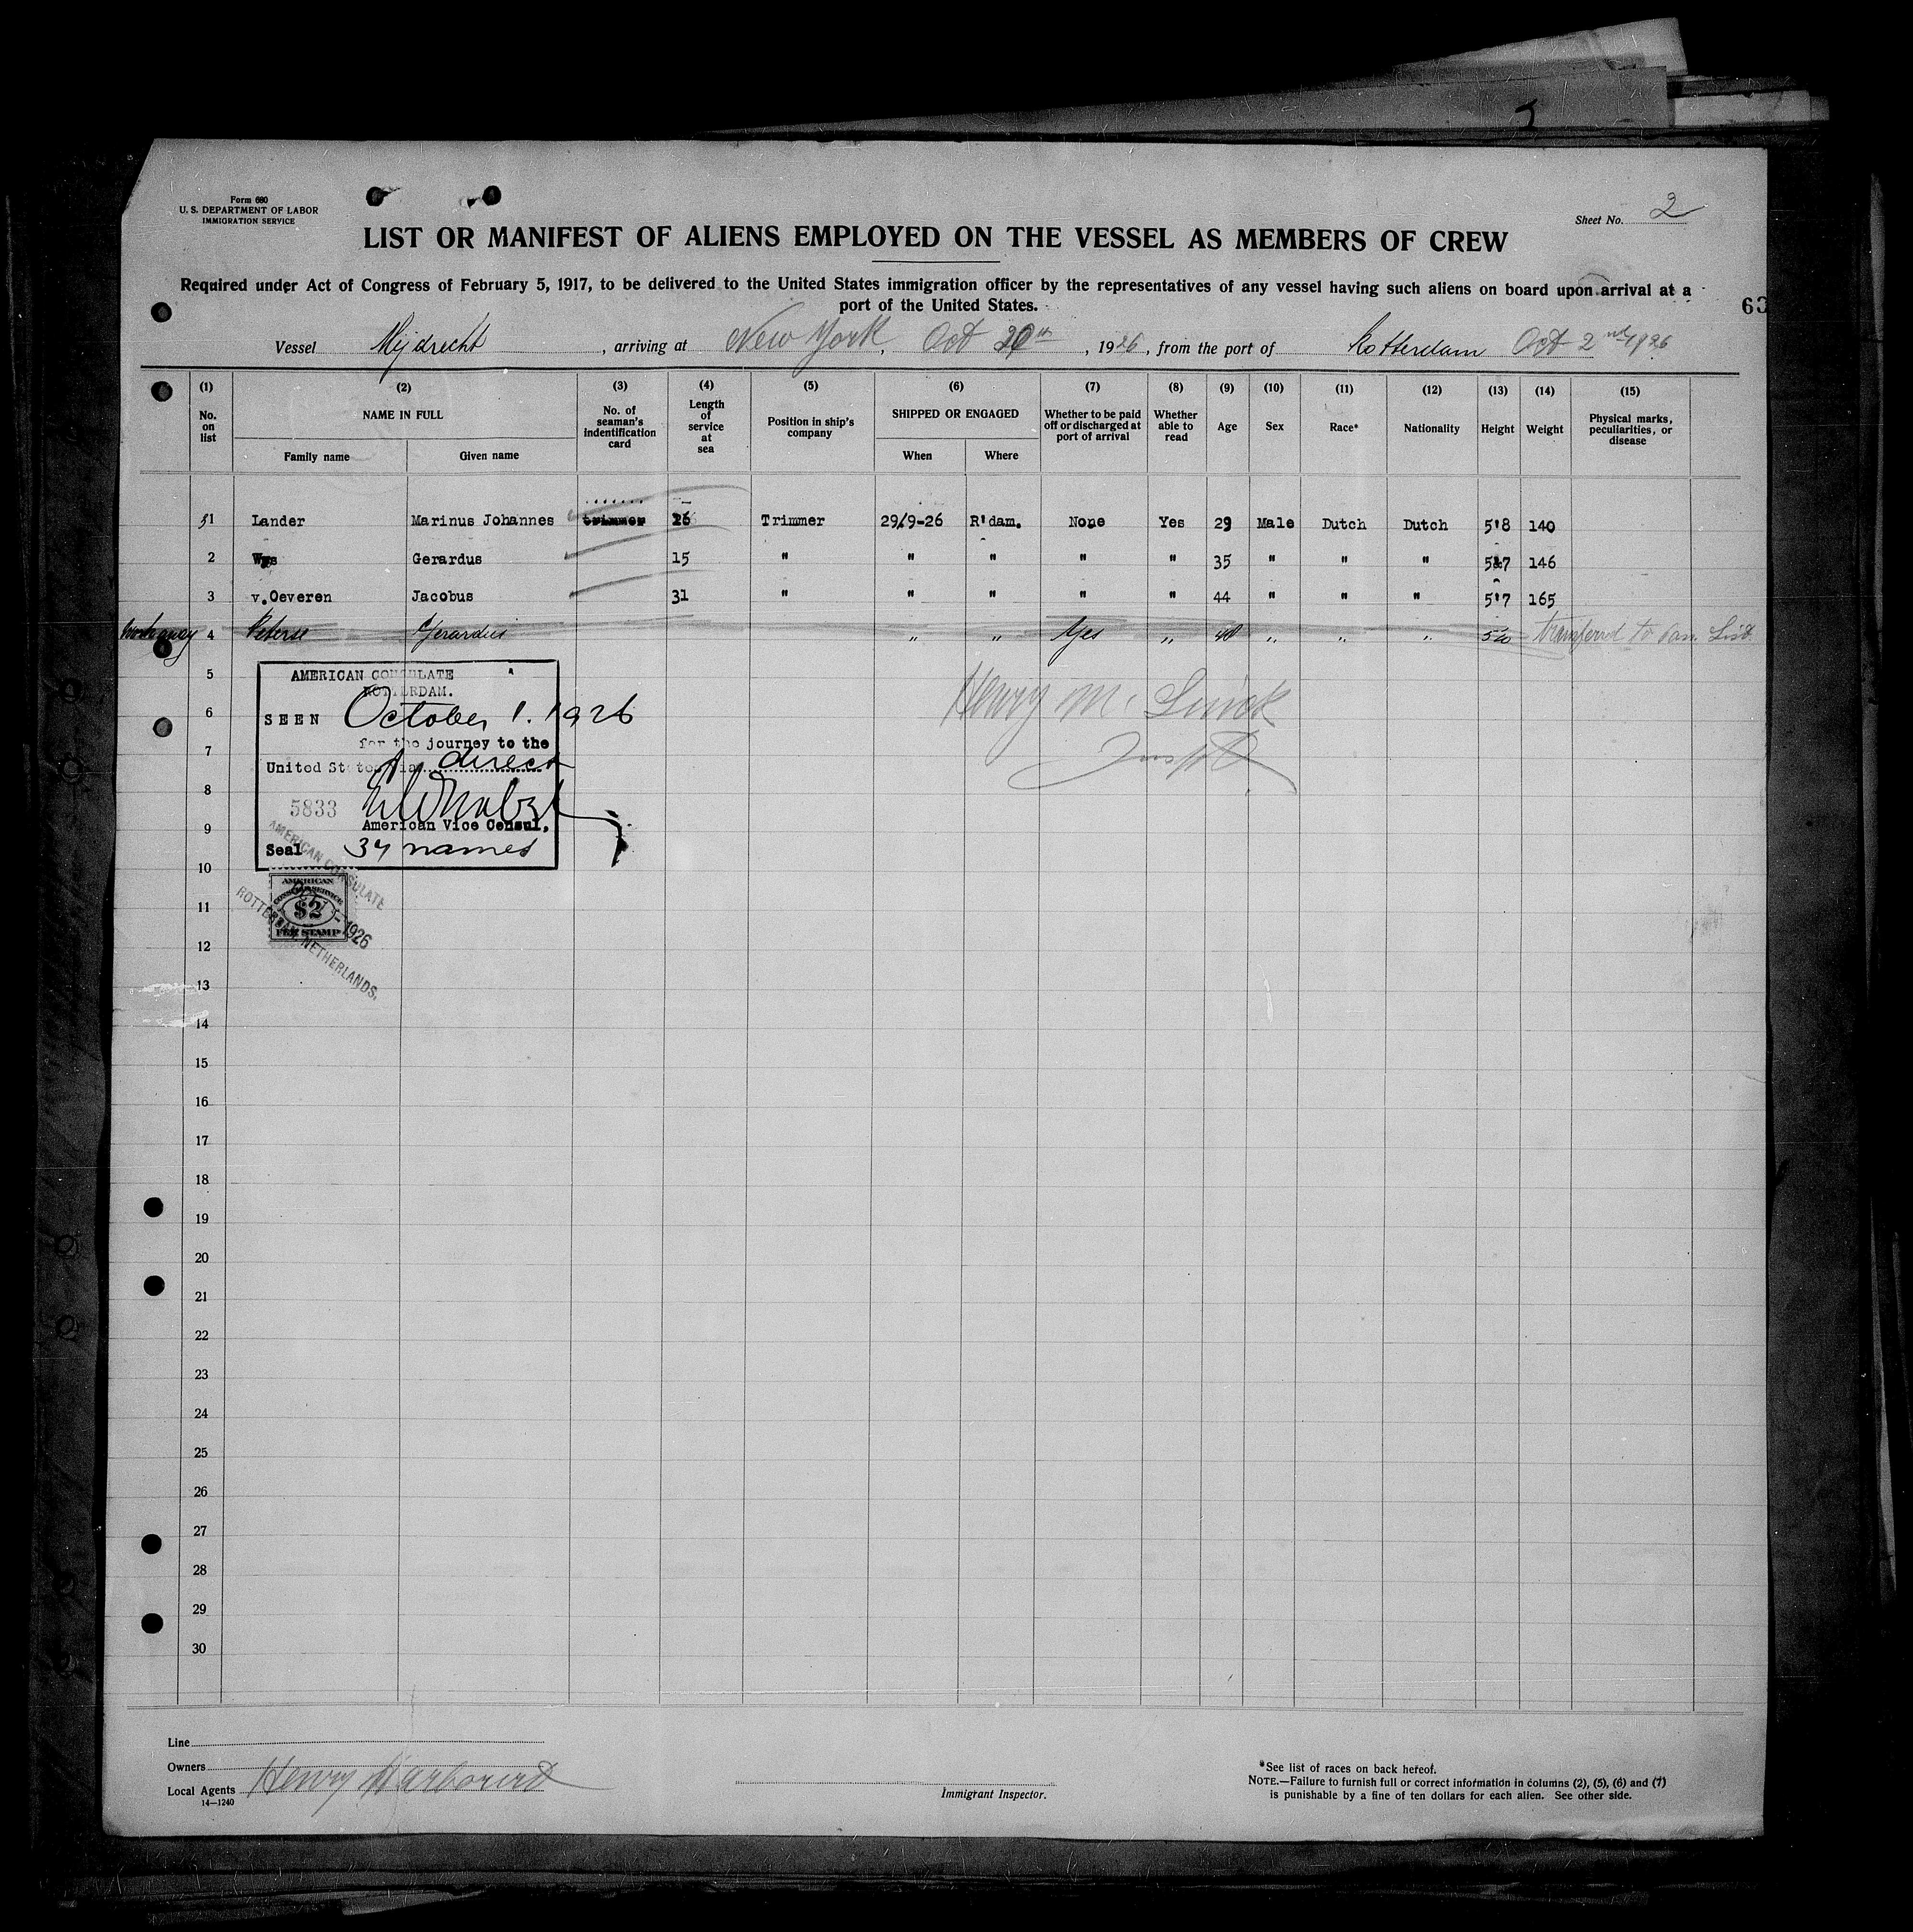 Form 680
U. S. DEPARTMENT OF LABOR
IMMIGRATION SERVICE
Sheet No. 2
LIST OR MANIFEST OF ALIENS EMPLOYED ON THE VESSEL AS MEMBERS OF CREW
Required under Act of Congress of February 5, 1917, to be delivered to the United States immigration officer by the representatives of any vessel having such aliens on board upon arrival at a
port of the United States.
63
Vessel Mijdrecht, arriving at New York, Oct 20th, 1926, from the port of Rotterdam Oct 2nd 1926
(1) (2) (3) (4) (5) (6) (7) (8) (9) (10) (11) (12) (13) (14) (15)
No. on list NAME IN FULL No. of seaman's indentification card Length of service at sea Position in ship's company SHIPPED OR ENGAGED Whether to be paid off or discharged at port of arrival Whether able to read Age Sex Race* Nationality Height Weight Physical marks, peculiarities, or disease
Family name Given name When Where
31 Lander Marinus Johannes trimmer 26 Trimmer 29/9-26 R'dam. None Yes 29 Male Dutch Dutch 5'8 140
2 Wys Gerardus 15 " " " " " 35 " " " 5'7 146
3 v.Oeveren Jacobus 31 " " " " " 44 " " " 5'7 165
Workaway 4 Peterse Gerardus " " Yes " 40 " " " transferred to Pan. List
5
AMERICAN CONSULATE
ROTTERDAM.
6
SEEN October 1. 1926
Henry M.
for the journey to the
7
United States via direct
8
5833
American Vice Consul,
9
Seal 34 names
10
AMERICAN CONSULATE
ROTTERDAM, NETHERLANDS.
AMERICAN
CONSULAR SERVICE
$2
FEE STAMP
1926
11
12
13
14
15
16
17
18
19
20
21
22
23
24
25
26
27
28
29
30
Line
Owners
Local Agents Henry
14—1240
Immigrant Inspector.
*See list of races on back hereof.
NOTE.—Failure to furnish full or correct information in columns (2), (5), (6) and (7)
is punishable by a fine of ten dollars for each alien. See other side.